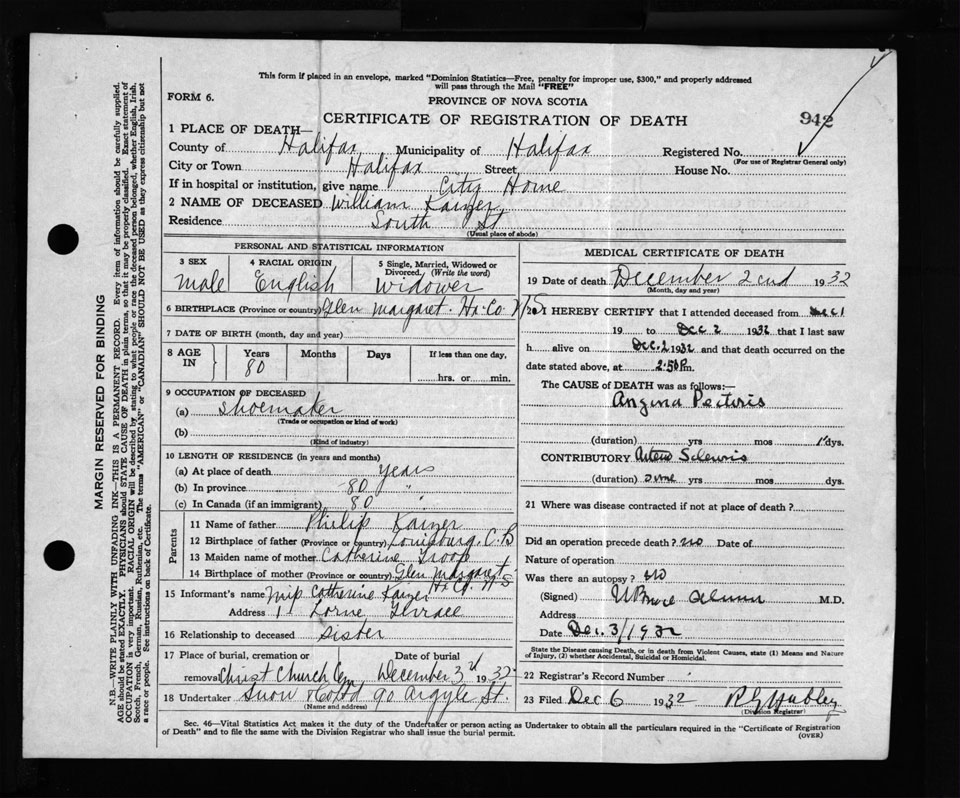 This form if placed in an envelope, marked "Dominion Statistics—Free, penalty for improper use, $300," and properly addressed
will pass through the Mail "FREE"
FORM 6.
PROVINCE OF NOVA SCOTIA
CERTIFICATE OF REGISTRATION OF DEATH
942
1 PLACE OF DEATH—
County of Halifax Municipality of Halifax Registered No.
(For use of Registrar General only)
City or Town Halifax Street House No.
If in hospital or institution, give name City Home
2 NAME OF DECEASED William Kaizer
Residence South St
(Usual place of abode)
PERSONAL AND STATISTICAL INFORMATION
3 SEX 4 RACIAL ORIGIN 5 Single, Married, Widowed or
Divorced. (Write the word)
male English Widower
6 BIRTHPLACE (Province or country) Glen Margaret. Hx. Co. N.S
7 DATE OF BIRTH (month, day and year)
8 AGE IN Years Months Days If less than one day,
80 hrs. or min.
9 OCCUPATION OF DECEASED
(a) Shoemaker
(Trade or occupation or kind of work)
(b)
(Kind of industry)
10 LENGTH OF RESIDENCE (in years and months)
(a) At place of death years
(b) In province 80 "
(c) In Canada (if an immigrant) 80 "
Parents
11 Name of father Philip Kaizer
12 Birthplace of father (Province or country) Louisbourg, C.B
13 Maiden name of mother Catherine Troop
14 Birthplace of mother (Province or country) Glen Margaret
Hx Co. N.S
15 Informant's name Catherine Kaizer
Address 1 Lorne Terrace
16 Relationship to deceased Sister
17 Place of burial, cremation or Date of burial
removal Christ Church Cem December 3d 1932
18 Undertaker Snow 90 Argyle St.
(Name and address)
MEDICAL CERTIFICATE OF DEATH
19 Date of death December 2cnd 1932
(Month, day and year)
20 I HEREBY CERTIFY that I attended deceased from Dec 1
19 to Dec 2 1932 that I last saw
h alive on Dec. 2 1932 and that death occurred on the
date stated above, at 2:50 P.m.
The CAUSE of DEATH was as follows:—
Angina Pectoris
(duration) yrs mos 1 dys.
CONTRIBUTORY
(duration) yrs mos dys.
21 Where was disease contracted if not at place of death?
Did an operation precede death? no Date of
Nature of operation
Was there an autopsy? no
(Signed) M.D.
Address
Date Dec. 3/1932
State the Disease causing Death, or in death from Violent Causes, state (1) Means and Nature
of Injury, (2) whether Accidental, Suicidal or Homicidal.
22 Registrar's Record Number
23 Filed Dec 6 1932
(Division Registrar)
Sec. 46—Vital Statistics Act makes it the duty of the Undertaker or person acting as Undertaker to obtain all the particulars required in the "Certificate of Registration
of Death" and to file the same with the Division Registrar who shall issue the burial permit.
(OVER)
MARGIN RESERVED FOR BINDING
N.B.—WRITE PLAINLY WITH UNFADING INK—THIS IS A PERMANENT RECORD. Every item of information should be carefully supplied.
AGE should be stated EXACTLY. PHYSICIANS should STATE CAUSE OF DEATH in plain terms, so that it may be properly classified. Exact statement of
OCCUPATION is very important. RACIAL ORIGIN will be described by stating to what people or race the deceased person belonged, whether English, Irish,
Scotch, French, German, Russian, Ruthenian, etc. The terms "AMERICAN" or "CANADIAN" SHOULD NOT BE USED as they express citizenship but not
a race or people. See instructions on back of Certificate.